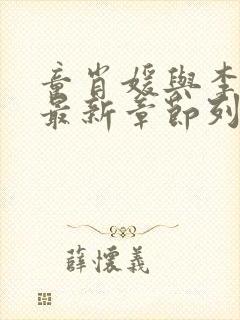 童肖媛與李
最新章節列
薛懷義